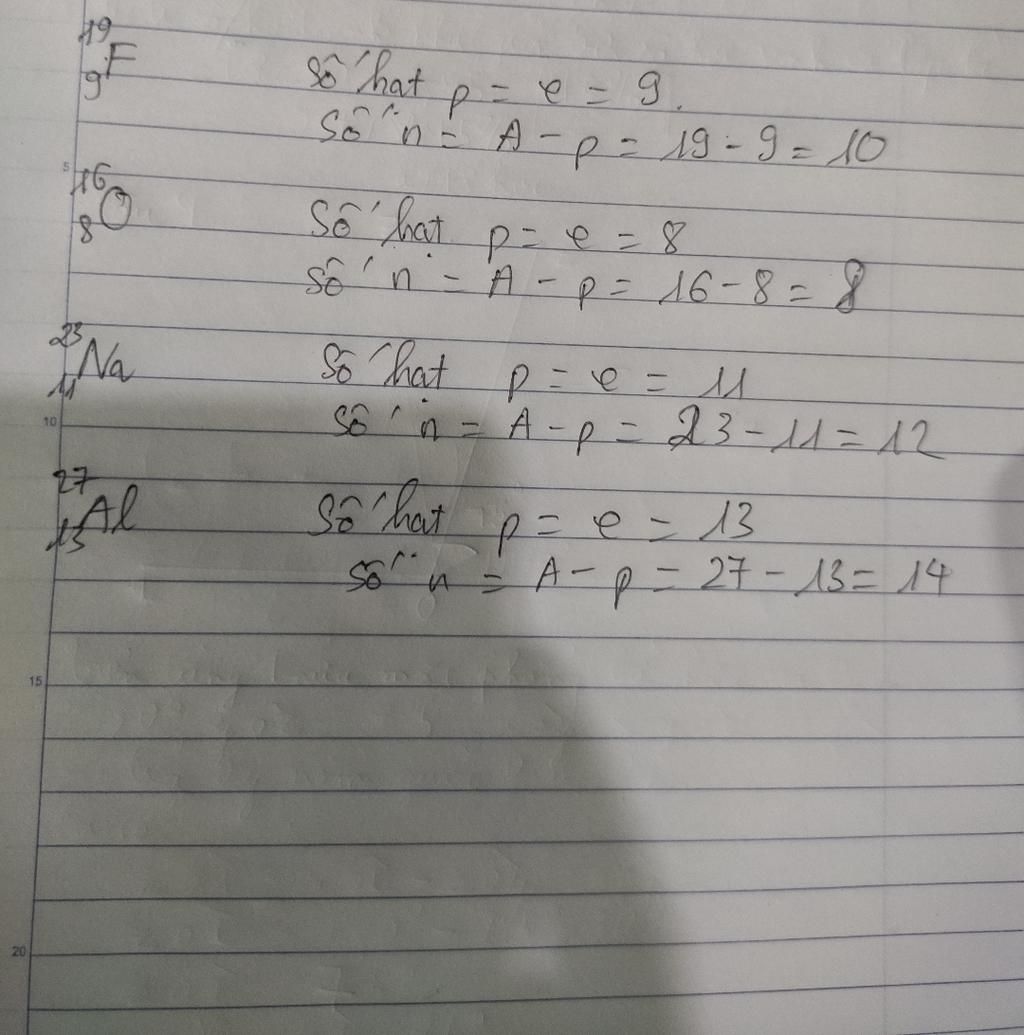 ¹⁹₉F Số hat p = e = 9.
Số n = A - p = 19 - 9 = 10
5
¹⁶₈O Số hat p = e = 8
Số n = A - p = 16 - 8 = 8
²³₁₁Na Số hat p = e = 11
10 Số n = A - p = 23 - 11 = 12
²⁷₁₃Al Số hat p = e = 13
Số n = A - p = 27 - 13 = 14
15
20